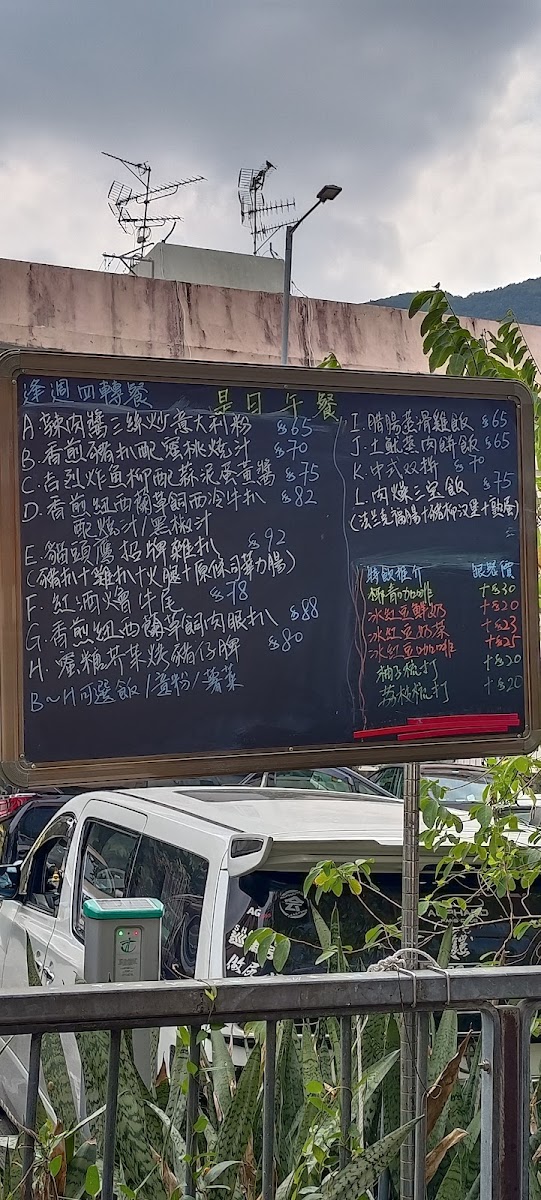 逢週四轉餐
是日午餐
A 辣肉醬三絲炒意大利粉 $65
B. 香煎豬扒配蜜桃燒汁 $70
C. 吉列炸魚柳配蒜泥蛋黃醬 $75
D. 香煎紐西蘭草飼西冷牛扒 $82
配燒汁/黑椒汁
E. 貓頭鷹招牌雞扒 $92
(豬扒+雞扒+火腿+原條司華力腸)
F. 紅酒燴牛尾 $78
G. 香煎紐西蘭草飼肉眼扒 $88
H. 蜜糖芥末燒豬仔脾 $80
B~H可選飯/意粉/薯菜
I. 腊腸蒸滑雞飯 $65
J. 土魷蒸肉餅飯 $65
K. 中式双拼 $70
L. 肉燥三宝飯 $75
(法兰克福腸+豬柳汉堡+煎蛋)
特飲推介 跟餐價
椰青咖啡 +$30
冰紅豆鮮奶 +$20
冰紅豆奶茶 +$23
冰紅豆咖啡 +$25
柚子梳打 +$20
荔枝梳打 +$20